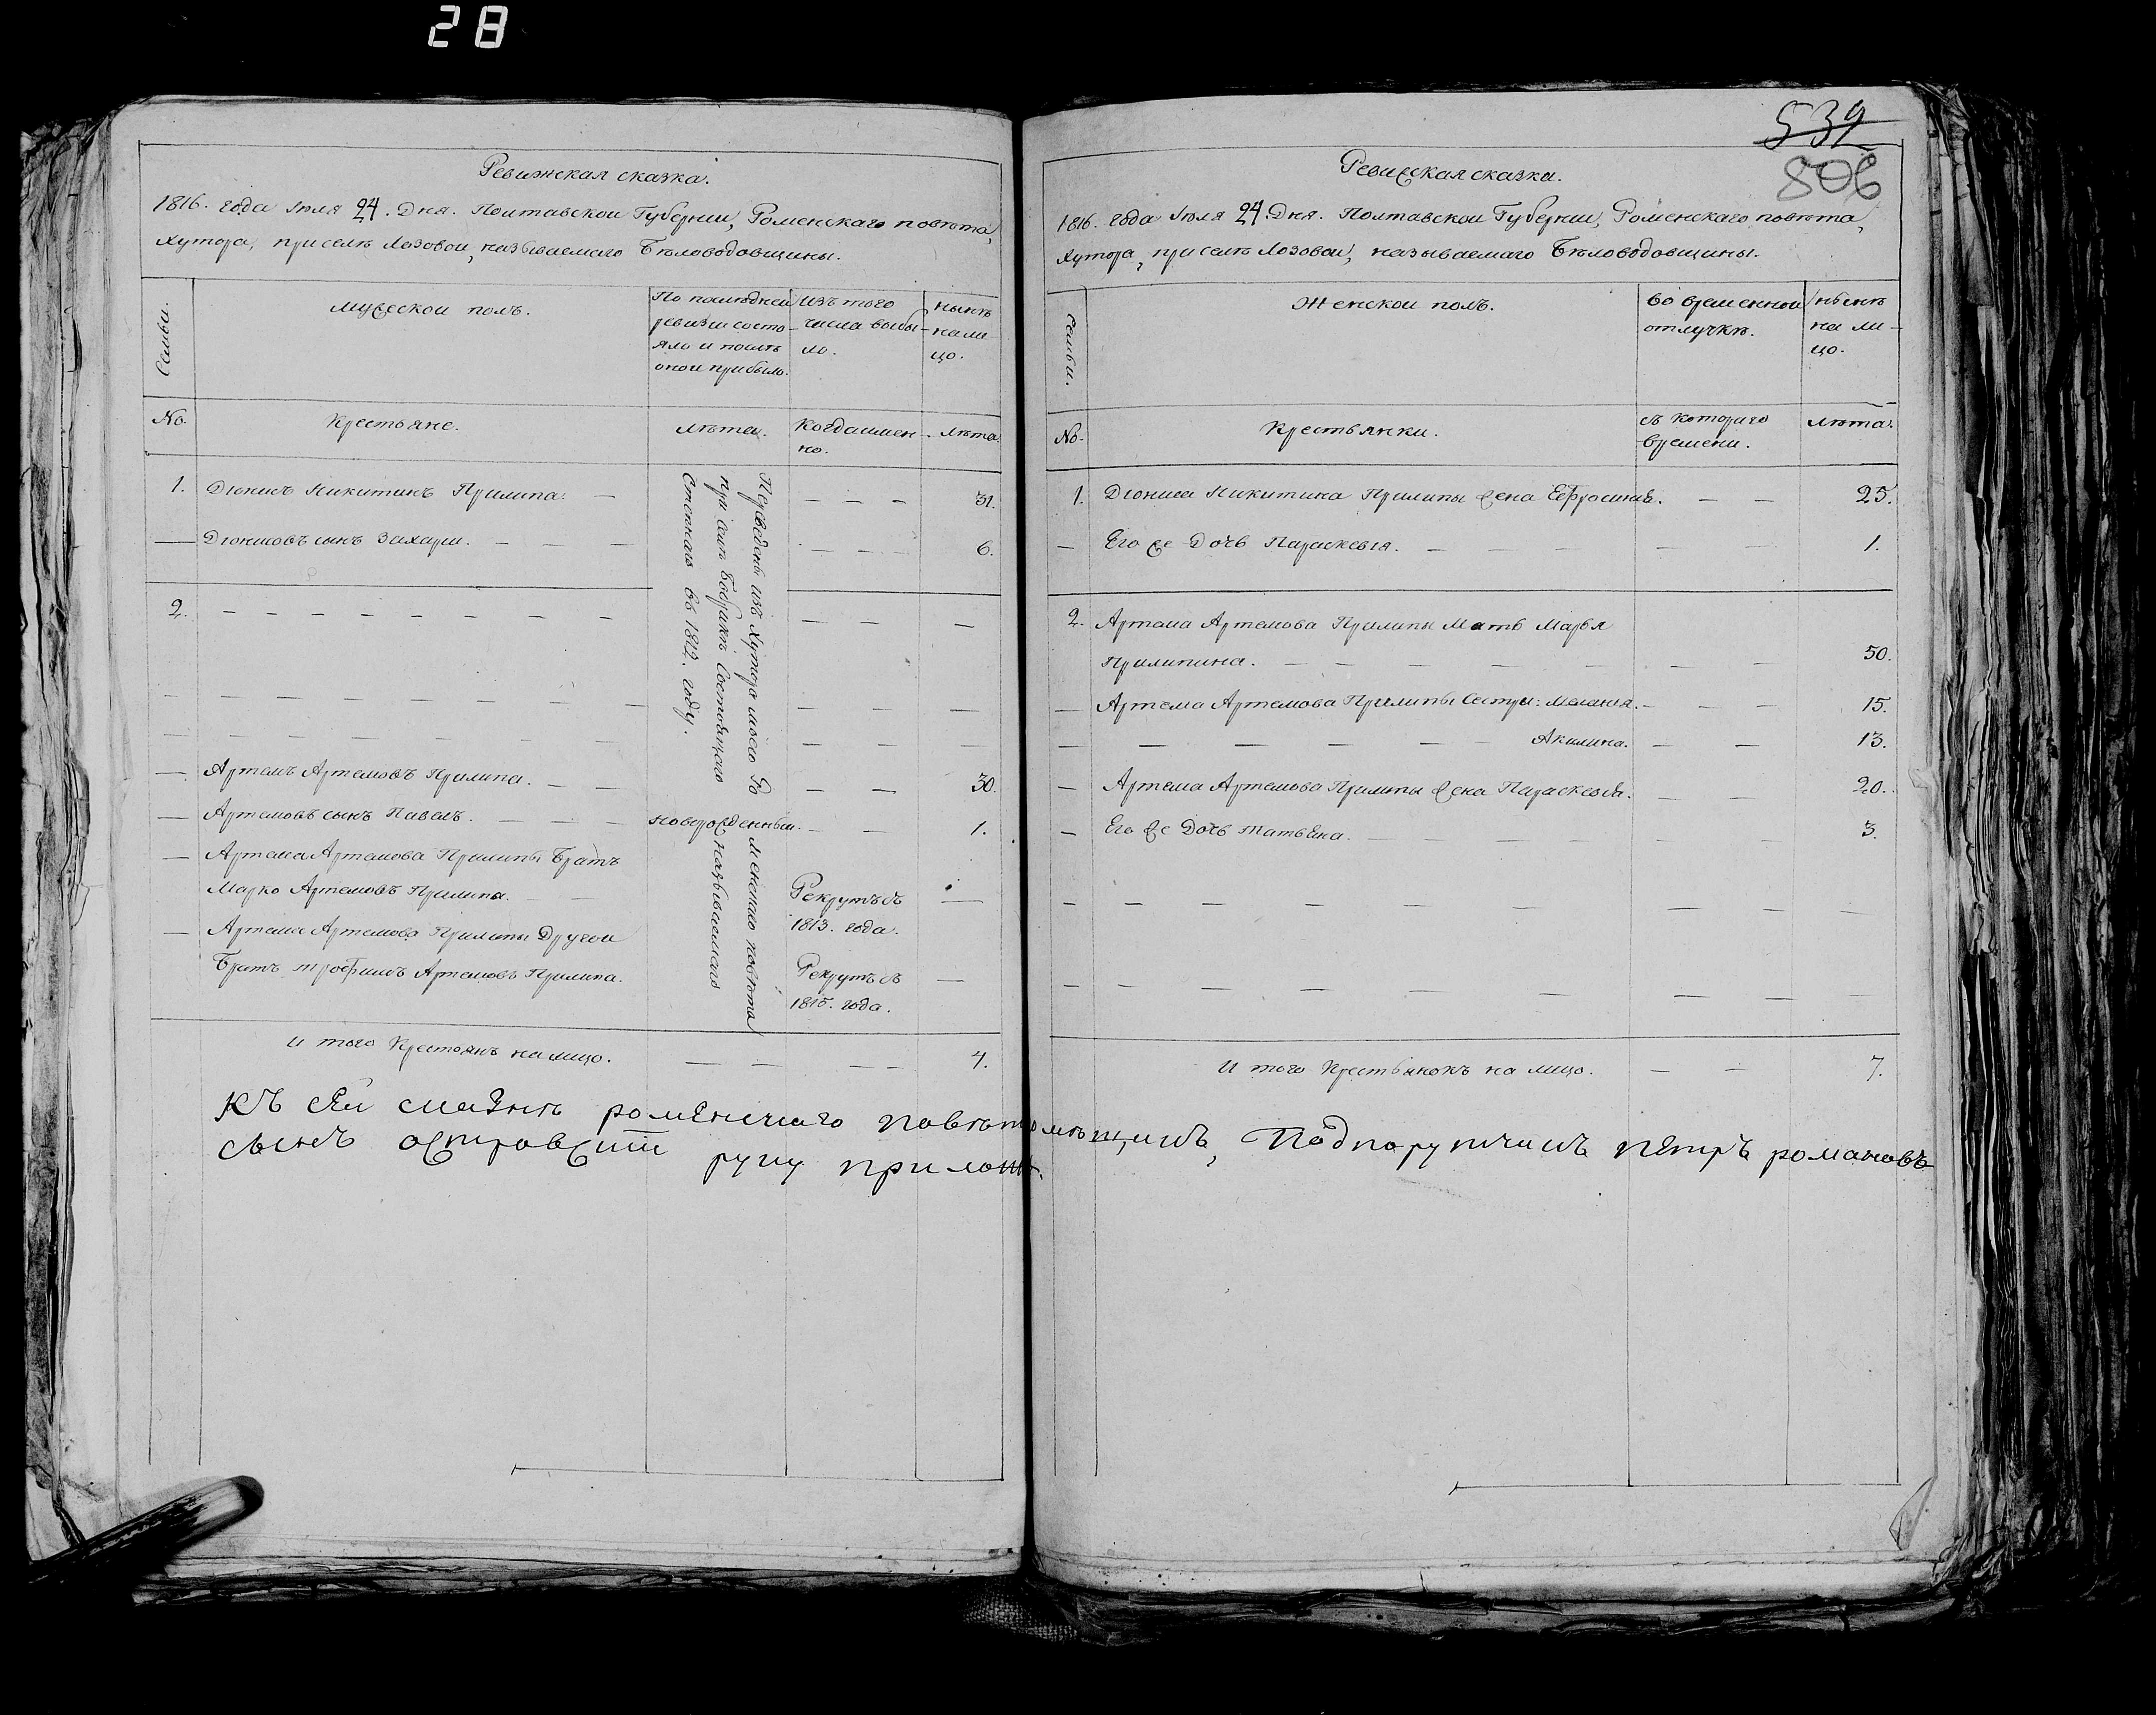 28
Ревижская сказка.
1816. года Июля 24. Дня. Полтавской Губернии, Роменскаго повѣта,
Хутора, при селѣ Лозовой, называемаго Бѣловодовщины.
Семьи.
Мужеской полъ.
По последней
ревизіи состо-
яло и послѣ
оной прибыло.
Изъ того
числа выбы-
ло.
нынѣ
на ли-
цо.
No.
Крестьяне.
лѣта.
Когда имен-
но.
лѣта.
Переведены изъ Хутора моего Ро
менскаго повѣта
при селѣ Бобрикѣ Состоящего
называемаго
Степкагв въ 1812. году.
1. Діонисъ Никитинъ Прилипа. 31.
Діонисовъ сынъ Захарій. 6.
2.
Артемъ Артемовъ Прилипа. 30.
Артемовъ сынъ Павелъ. новорожденный. 1.
Артема Артемова Прилипы Братъ
Марко Артемовъ Прилипа. Рекрутъ съ
1813. года.
Артема Артемова Прилипы Другой
Братъ Трофимъ Артемовъ Прилипа. Рекрутъ съ
1815. года.
И того Крестьянъ на лицо. 4.
539
806
Ревижская сказка.
1816. года Июля 24. Дня. Полтавской Губернии, Роменскаго повѣта,
Хутора, при селѣ Лозовой, называемаго Бѣловодовщины.
Семьи.
Женской полъ.
Во временной
отлучкѣ.
нынѣ
на ли-
цо.
No.
Крестьянки.
съ котораго
времени.
лѣта.
1. Діониса Никитина Прилипы жена Евфросинія. 25.
Его же Дочь Параскевія. 1.
2. Артема Артемова Прилипы Мать Марья
Прилипина. 50.
Артема Артемова Прилипы Сестры: Меланія. 15.
Акилина. 13.
Артема Артемова Прилипы жена Параскевія. 20.
Его же Дочь Татьяна. 3.
И того Крестьянокъ на лицо. 7.
Къ сей сказкѣ роменскаго повѣта помѣщикъ, Подпоручикъ петръ романовъ
сынъ руку приложилъ.